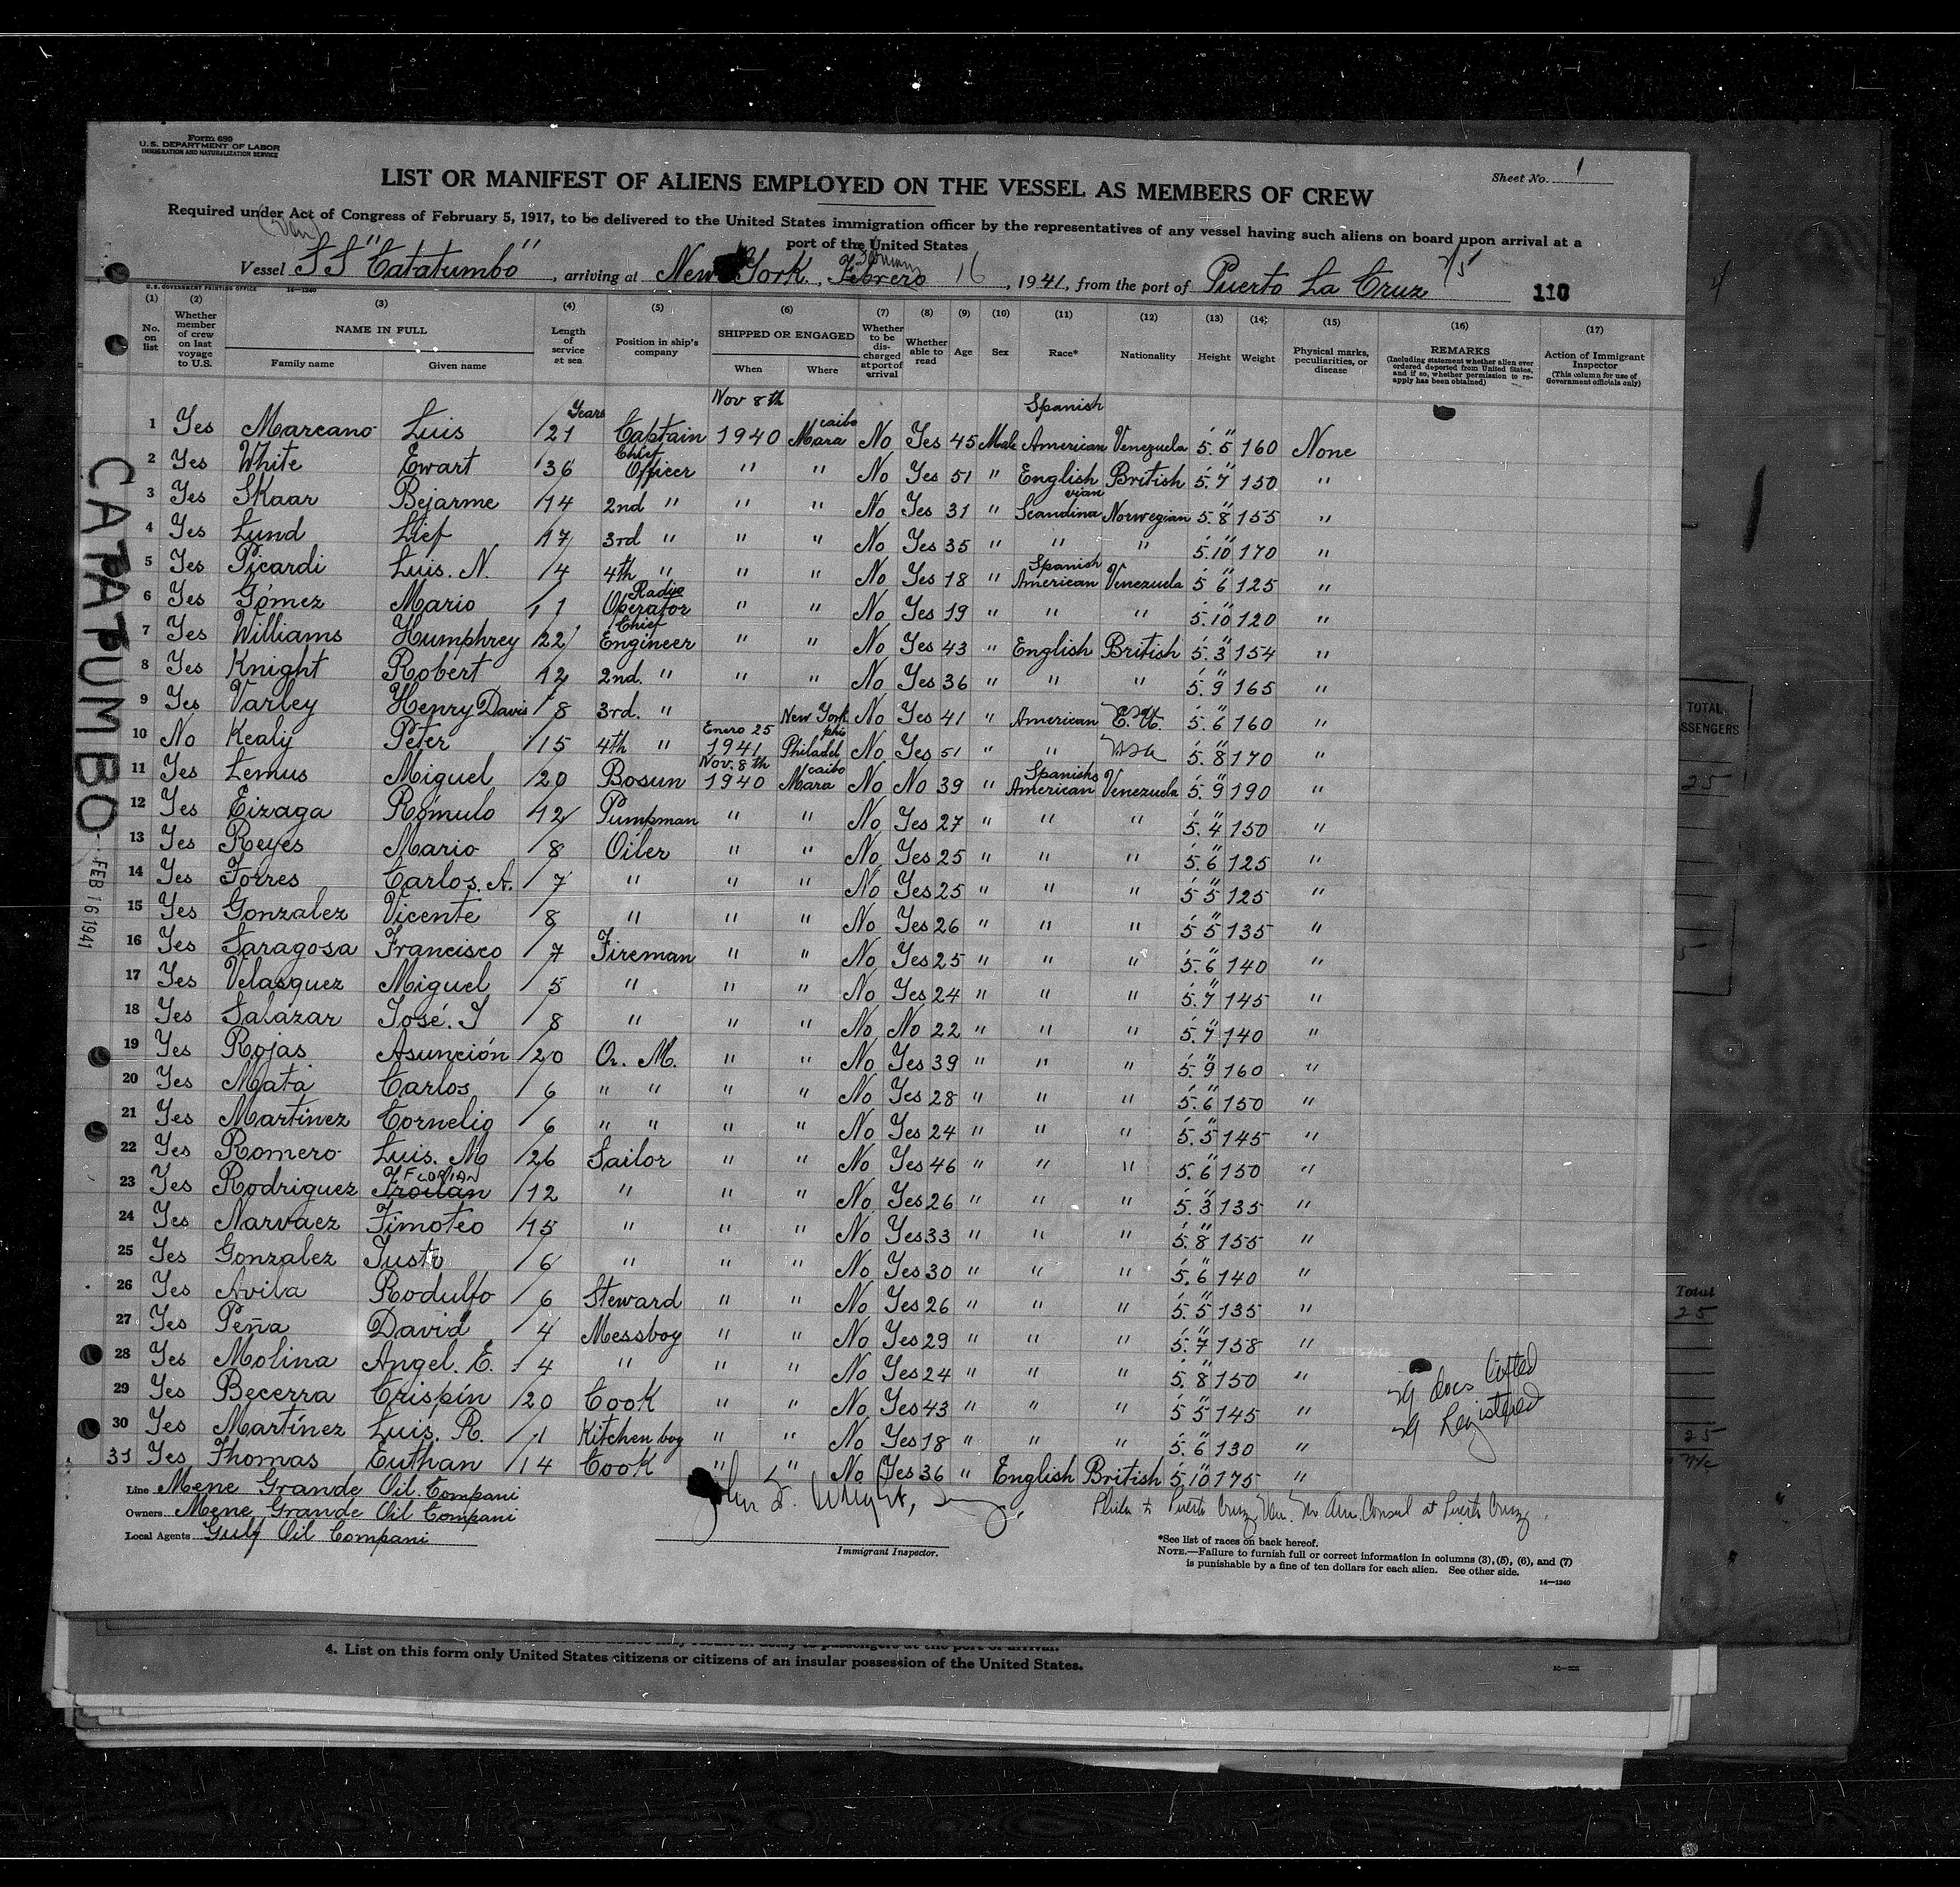 Form 680
U.S. DEPARTMENT OF LABOR
IMMIGRATION AND NATURALIZATION SERVICE
Sheet No. 1
LIST OR MANIFEST OF ALIENS EMPLOYED ON THE VESSEL AS MEMBERS OF CREW
Required under Act of Congress of February 5, 1917, to be delivered to the United States immigration officer by the representatives of any vessel having such aliens on board upon arrival at a
port of the United States
(Ven)
Vessel SS "Catatumbo", arriving at New York, Febrero 16, 1941, from the port of Puerto La Cruz 110
U.S. GOVERNMENT PRINTING OFFICE 14—1240
(1) (2) (3) (4) (5) (6) (7) (8) (9) (10) (11) (12) (13) (14) (15) (16) (17)
No. on list Whether member of crew on last voyage to U.S. NAME IN FULL Family name Given name Length of service at sea Position in ship's company SHIPPED OR ENGAGED When Where Whether to be discharged at port of arrival Whether able to read Age Sex Race* Nationality Height Weight Physical marks, peculiarities, or disease REMARKS (Including statement whether alien ever ordered deported from United States, and if so, whether permission to reapply has been obtained) Action of Immigrant Inspector (This column for use of Government officials only)
1 Yes Marcano Luis 21 Years Captain Nov 8th 1940 Maracaibo No Yes 45 Male Spanish American Venezuela 5' 5" 160 None
2 Yes White Ewart 36 Chief Officer " " No Yes 51 " English British 5' 7" 150 "
3 Yes Skaar Bejarme 14 2nd " " " No Yes 31 " Scandinavian Norwegian 5' 8" 155 "
4 Yes Lund Lief 17 3rd " " " No Yes 35 " " " 5' 10" 170 "
5 Yes Picardi Luis. N. 4 4th " " " No Yes 18 " Spanish American Venezuela 5' 6" 125 "
6 Yes Gómez Mario 1 Radio Operator " " No Yes 19 " " " 5' 10" 120 "
7 Yes Williams Humphrey 22 Chief Engineer " " No Yes 43 " English British 5' 3" 154 "
8 Yes Knight Robert 12 2nd. " " " No Yes 36 " " " 5' 9" 165 "
9 Yes Varley Henry Davis 8 3rd. " New York No Yes 41 " American E. U. 5' 6" 160 "
10 No Kealy Peter 15 4th " Enero 25 1941 Philadelphia No Yes 51 " " USA 5' 8" 170 "
11 Yes Lemus Miguel 20 Bosun Nov. 8th 1940 Maracaibo No No 39 " Spanish American Venezuela 5' 9" 190 "
12 Yes Eizaga Rómulo 12 Pumpman " " No Yes 27 " " " 5' 4" 150 "
13 Yes Reyes Mario 8 Oiler " " No Yes 25 " " " 5' 6" 125 "
14 Yes Torres Carlos. A. 7 " " " No Yes 25 " " " 5' 5" 125 "
15 Yes Gonzalez Vicente 8 " " " No Yes 26 " " " 5' 5" 135 "
16 Yes Saragosa Francisco 7 Fireman " " No Yes 25 " " " 5' 6" 140 "
17 Yes Velasquez Miguel 5 " " " No Yes 24 " " " 5' 7" 145 "
18 Yes Salazar José. J 8 " " " No No 22 " " " 5' 7" 140 "
19 Yes Rojas Asunción 20 Q. M. " " No Yes 39 " " " 5' 9" 160 "
20 Yes Mata Carlos 6 " " " " No Yes 28 " " " 5' 6" 150 "
21 Yes Martínez Cornelio 6 " " " " No Yes 24 " " " 5' 5" 145 "
22 Yes Romero Luis. M 26 Sailor " " No Yes 46 " " " 5' 6" 150 "
23 Yes Rodriguez Troilan FLORIAN 12 " " " No Yes 26 " " " 5' 3" 135 "
24 Yes Narvaez Timoteo 15 " " " No Yes 33 " " " 5' 8" 155 "
25 Yes Gonzalez Justo 6 " " " No Yes 30 " " " 5' 6" 140 "
26 Yes Avila Rodulfo 6 Steward " " No Yes 26 " " " 5' 5" 135 "
27 Yes Peña David 4 Messboy " " No Yes 29 " " " 5' 7" 158 "
28 Yes Molina Angel. E. 4 " " " No Yes 24 " " " 5' 8" 150 "
29 Yes Becerra Crispín 20 Cook " " No Yes 43 " " " 5' 5" 145 "
30 Yes Martínez Luis. R. 1 Kitchen boy " " No Yes 18 " " " 5' 6" 130 "
31 Yes Thomas Euthan 14 Cook " " No Yes 36 " English British 5' 10" 175 "
29 docs lifted
29 Registered
Line Mene Grande Oil Compani
Owners Mene Grande Oil Compani
Local Agents Gulf Oil Compani
Immigrant Inspector.
*See list of races on back hereof.
NOTE.—Failure to furnish full or correct information in columns (3), (5), (6), and (7)
is punishable by a fine of ten dollars for each alien. See other side.
14—1240
CATATUMBO
FEB 16 1941
4. List on this form only United States citizens or citizens of an insular possession of the United States.
TOTAL
25
Total
25
25